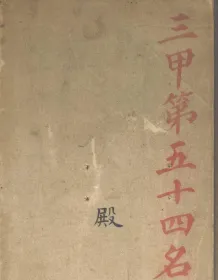 三甲第五十四名
殿